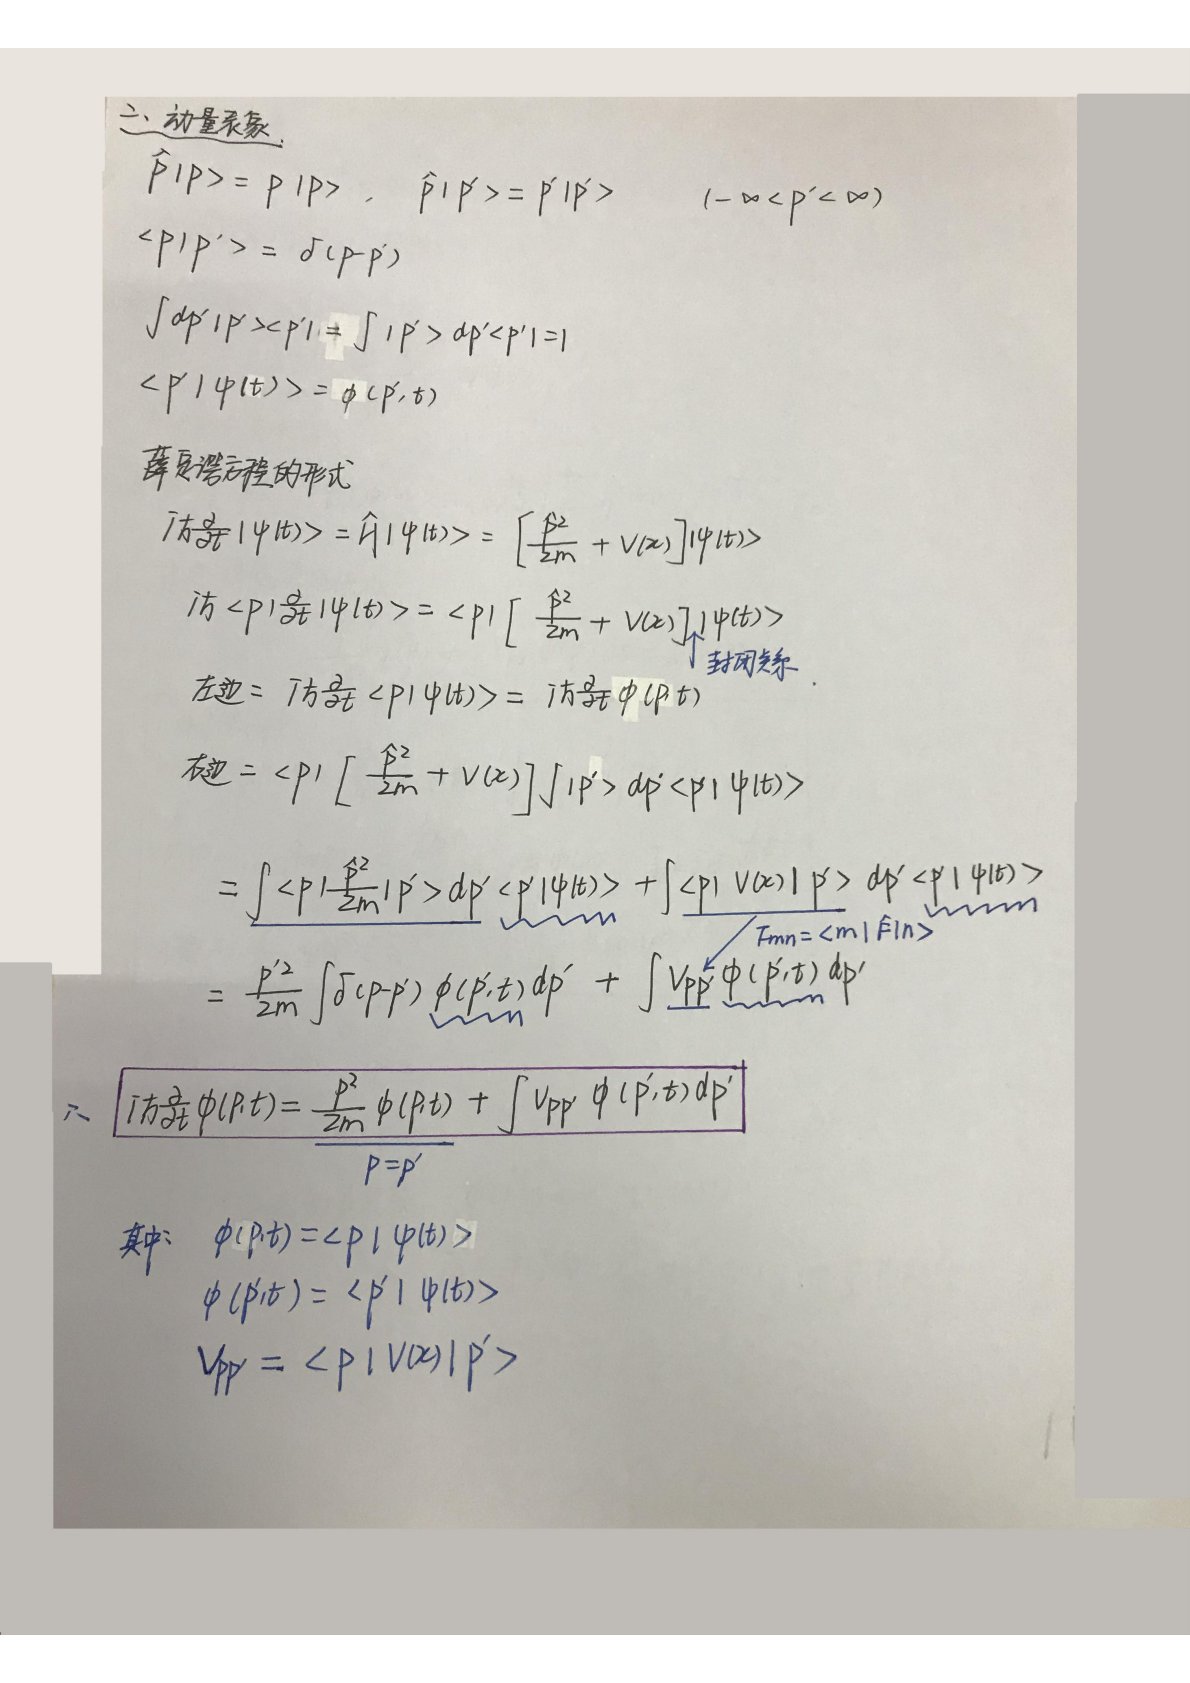 二、动量表象
p̂|p> = p|p> , p̂|p′> = p′|p′> (-∞<p′<∞)
<p|p′> = δ(p-p′)
∫dp′|p′><p′| = ∫|p′>dp′<p′| = 1
<p′|ψ(t)> = φ(p′,t)
薛定谔方程的形式
iħ ∂/∂t |ψ(t)> = Ĥ|ψ(t)> = [p̂²/2m + V(x)]|ψ(t)>
iħ<p|∂/∂t|ψ(t)> = <p|[p̂²/2m + V(x)]|ψ(t)>
↑封闭关系.
左边 = iħ ∂/∂t <p|ψ(t)> = iħ ∂/∂t φ(p,t)
右边 = <p|[p̂²/2m + V(x)]∫|p′>dp′<p′|ψ(t)>
= ∫<p|p̂²/2m|p′>dp′<p′|ψ(t)> + ∫<p|V(x)|p′>dp′<p′|ψ(t)>
Fmn = <m|F̂|n>
= p′²/2m ∫δ(p-p′)φ(p′,t)dp′ + ∫Vpp′ φ(p′,t)dp′
∴ iħ ∂/∂t φ(p,t) = p²/2m φ(p,t) + ∫Vpp′ φ(p′,t)dp′
p=p′
其中: φ(p,t) = <p|ψ(t)>
φ(p′,t) = <p′|ψ(t)>
Vpp′ = <p|V(x)|p′>